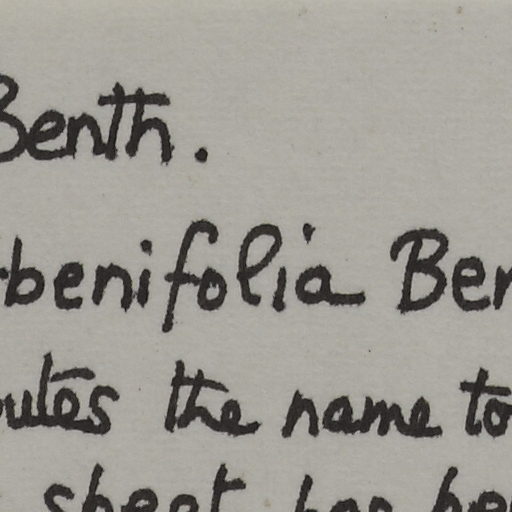 Benth.
benifolia Ben
utes the name to
sheet has be